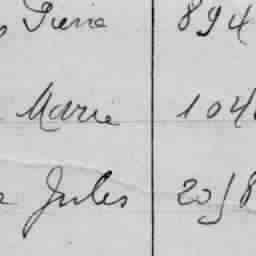 Pierre 894
Marie 104
Jules 2058